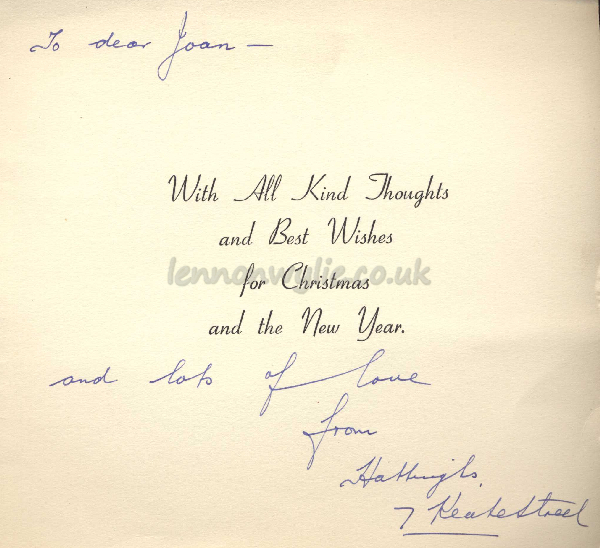 To dear Joan —
With All Kind Thoughts
and Best Wishes
lennonwylie.co.uk
for Christmas
and the New Year.
and lots of love
from
7 Keate Street